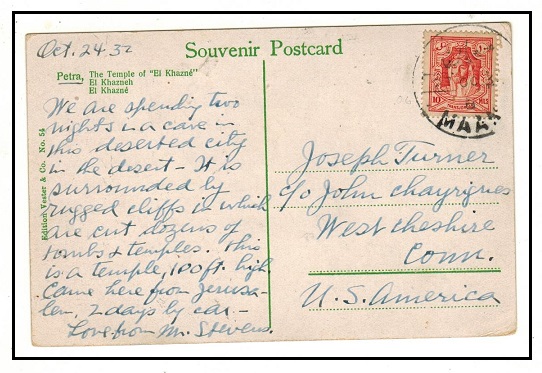 Oct. 24. 32
Souvenir Postcard
Petra, The Temple of "El Khazné"
El Khazneh
El Khazné
We are spending two
nights in a cave in
this deserted city
in the desert - It is
surrounded by
rugged cliffs in which
are cut dozens of
tombs & temples. This
is a temple, 100 ft. high.
Came here from Jerusa-
lem, 2 days by car -
Love from Mr. Stevens.
Edition Vester & Co. No. 54
10 MILS
MAAN
Joseph Turner
c/o John Chayrigues
Westcheshire
Conn.
U.S. America